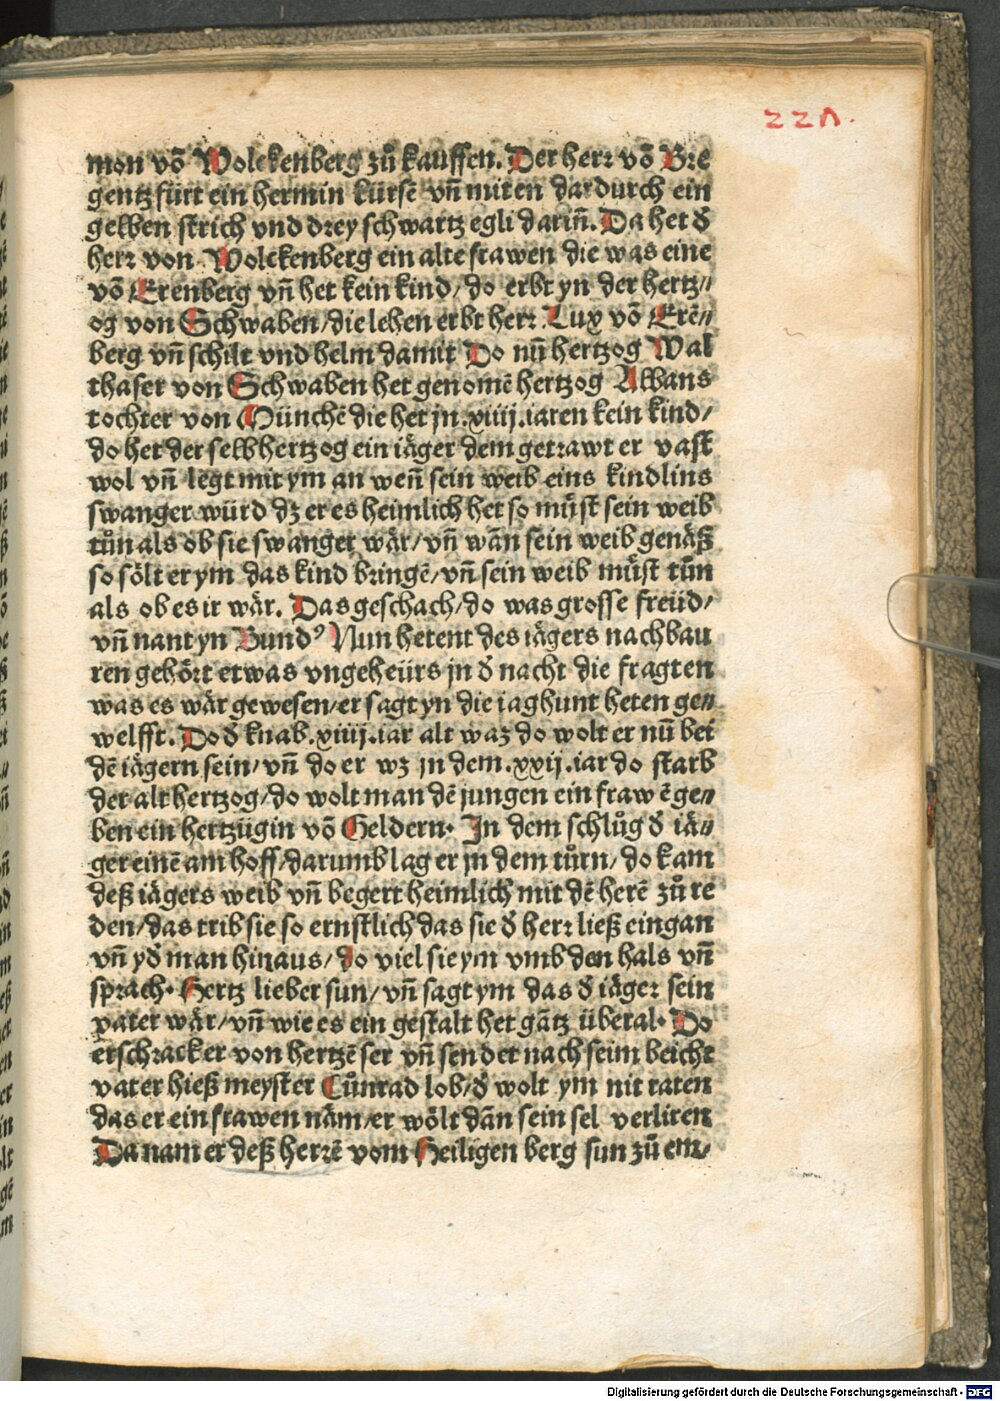 221.
mon võ Wolckenberg zů kauffen. Der herr võ Bre
gentz fürt ein hermin kürsẽ vñ miten dardurch ein
gelben strich vnd drey schwartz egli dariñ. Da het d̕
herr von Wolckenberg ein alte frawen die was eine
võ Erenberg vñ het kein kind/ do erbt yn der hertz//
og von Schwaben/ die lehen erbt herr Lux võ Erẽ//
berg vñ schilt vnd helm damit Do nũ hertzog Wal
thaser von Schwaben het genomẽ hertzog Albans
tochter von Münchẽ die het jn .xiiij. iaren kein kind/
do het der selb hertzog ein iäger dem getrawt er vast
wol vñ legt mit ym an weñ sein weib eins kindlins
swanger würd dz er es heimlich het so můst sein weib
tůn als ob sie swanger wär/ vñ wãn sein weib genäß
so sölt er ym das kind bringẽ/ vñ sein weib můst tůn
als ob es ir wär. Das geschach/ do was grosse freüd/
vñ nant yn Bundꝰ Nun hetent des iägers nachbau
ren gehört etwas vngeheürs jn d̕ nacht die fragten
was es wär gewesen/ er sagt yn die iaghunt heten ge//
welfft. Do d̕ knab .xiiij. iar alt waz do wolt er nũ bei
dẽ iägern sein/ vñ do er wz jn dem .xxij. iar do starb
der alt hertzog/ do wolt man dẽ jungen ein fraw ẽ ge//
ben ein hertzügin võ Geldern. In dem schlůg d̕ iä//
ger einẽ am hoff/ darumb lag er jn dem tůrn/ do kam
deß iägers weib vñ begert heimlich mit dẽ herẽ zů re
den/ das trib sie so ernstlich das sie d̕ herr ließ eingan
vñ yd̕ man hinaus/ do viel sie ym vmb den hals vñ
sprach. Hertz lieber sun/ vñ sagt ym das d̕ iäger sein
vater wär/ vñ wie es ein gestalt het gãtz überal. Do
erschrack er von hertzẽ ser vñ sendet nach seim beicht
vater hieß meyster Cůnrad lob/ d̕ wolt ym nit raten
das er ein frawen näm/ er wölt dãn sein sel verliren
Da nam er deß herrẽ vom Heiligen berg sun zů em/
Digitalisierung gefördert durch die Deutsche Forschungsgemeinschaft - DFG